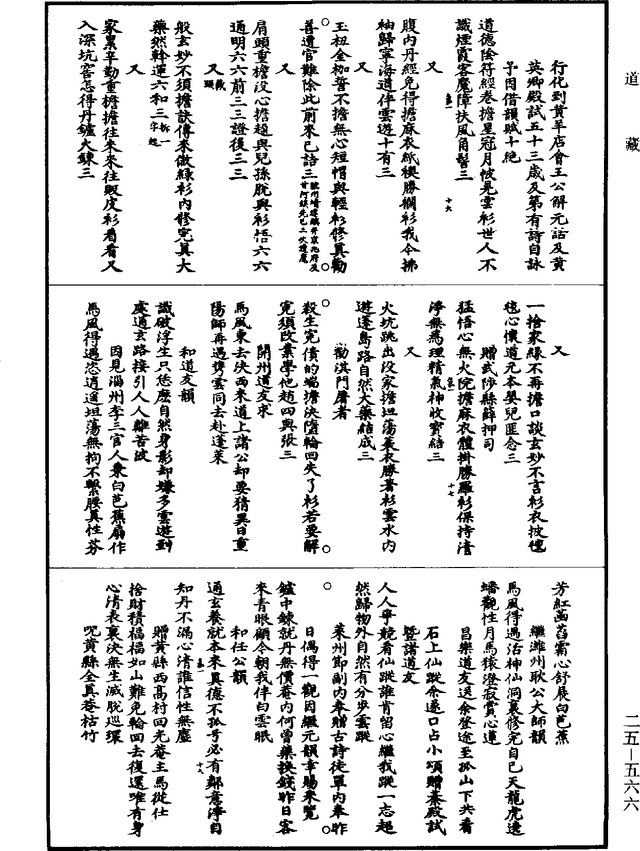 道藏
行化到黃羊店會王公解元話及黃
英卿殿試五十三歲及第有詩自詠
予因借韻賦十絕
道德陰符經卷擔星冠月帔晃雲衫世人不
識煙霞客魔障扶風角髻三
十六
又
腹內丹經免得擔麻衣紙襖勝襴衫我今拂
袖歸寧海道伴雲遊十有三
又
玉杻金枷誓不擔無心短帽與輕衫修真勸
善遭官難除此前來已詰三
又
肩頭重擔沒心擔超與兒孫脫與衫悟六六
通明六六前三三證後三三
又
藏頭
般玄妙不須擔訣傳來做綠衫內修完真大
藥然幹運六和三
拆一字起
又
家累辛勤重擔擔往來來往毀皮衫看看又
入深坑窖怎得丹爐火鍊三
又
一捨家緣不再擔口談玄妙不言衫衣披氊
毯心懷道元本嬰兒匪念三
贈武陟縣薛押司
猛悟心無火院擔麻衣體掛勝羅衫保持清
淨無為理精氣神收寶結三
十七
又
火坑跳出沒家擔坦蕩蓑衣勝著衫雲水內
遊蓬島路自然大藥結成三
勸淇門屠者
殺生冤債的端擔決墮輪回失了衫若要解
冤須改業學他趙四與張三
開州道友求
馬風東去決西來道上諸公却要猜異日重
陽師再遇雙雲同去赴蓬萊
和道友韻
識破浮生只恁麼自然身影却嫌多雲遊到
處通玄路接引人人離苦波
因見淄州李三官人秉白芭蕉扇作
馬風得遇恣逍遙坦蕩無拘不繫腰真性芬
芳紅菡萏霜心舒展白芭蕉
繼濰州耿公大師韻
馬風得遇活神仙洞裏修完自己天龍虎遶
蟠觀性月馬猿澄寂賞心蓮
昌樂道友送余登途至孤山下共看
石上仙蹤余遂口占小頌贈綦殿試
暨諸道友
人人爭競看仙蹤誰肯留心繼我蹤一志超
然歸物外自然有分步雲蹤
萊州節副內奉贈古詩徒單內奉昨
日偶得一觀因繼元韻幸賜來覽
爐中鍊就丹無價菴內何曾藥換錢昨日客
來青眼顧今朝我伴白雲眠
和任公韻
通玄養就本來真德不孤兮必有鄰意淨自
知丹不漏心清誰信性無塵
十八
贈黃縣西高村回光菴主馬從仕
捨財積福福如山難免輪回去復還唯有身
心清表裏決無生滅脫巡環
咒黃縣全真菴枯竹
二五—五六六